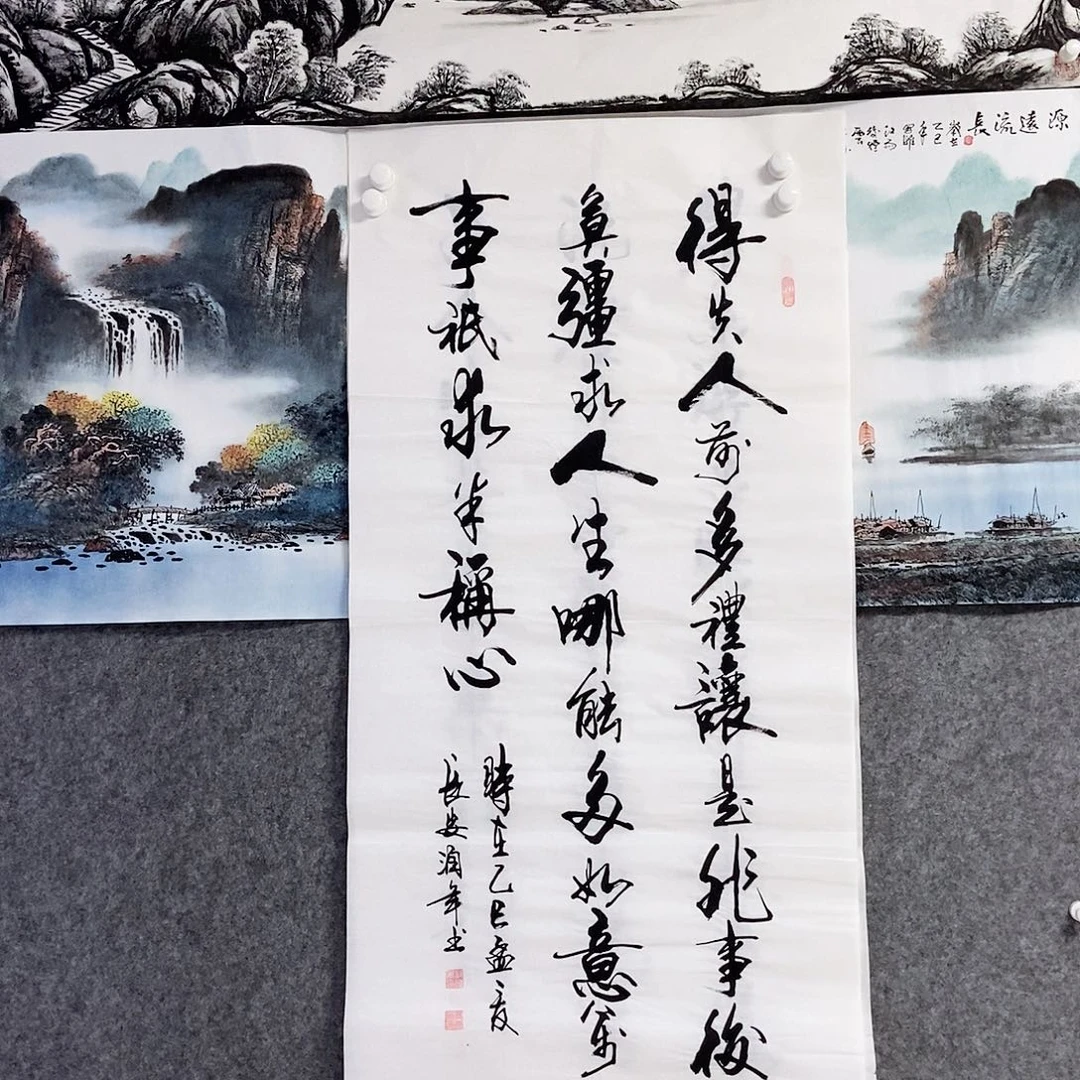 源遠流長
歲在
乙巳
年
得失人前多禮讓是非事後
莫彊求人生哪能多如意萬
事祇求半稱心
時在乙巳孟夏
長安潤年书